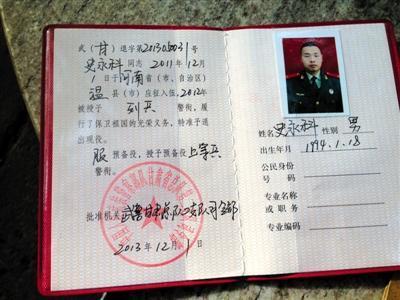 武(甘)退字第20130003号
史永科同志2011年12月
1日于河南省(市、自治区)
温县(市)应征入伍,2012年
被授予列兵警衔,履
行了保卫祖国的光荣义务,特准予退
出现役。
服预备役,授予预备役上等兵
警衔。
批准机关
2013年12月1日
姓名史永科性别男
出生年月1994.1.18
公民身份
号码
专业名称
或职务
专业编码